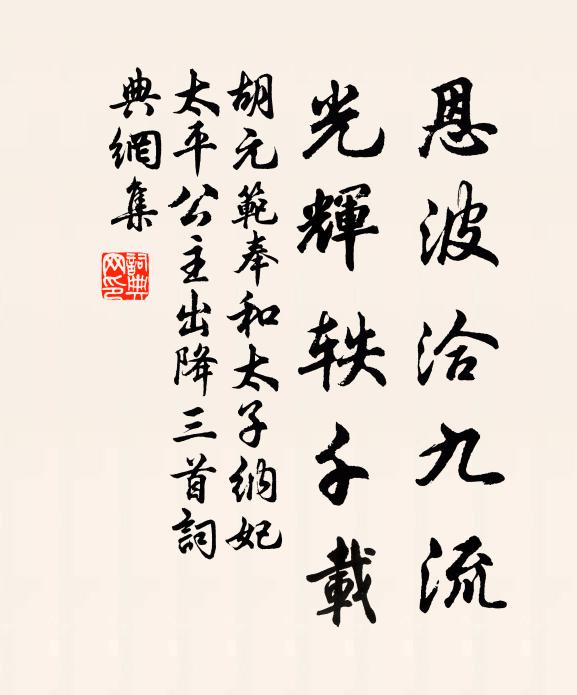 恩波洽九流
光輝軼千載
胡元範奉和太子納妃
太平公主出降三首詞
典網集
詞典
网印